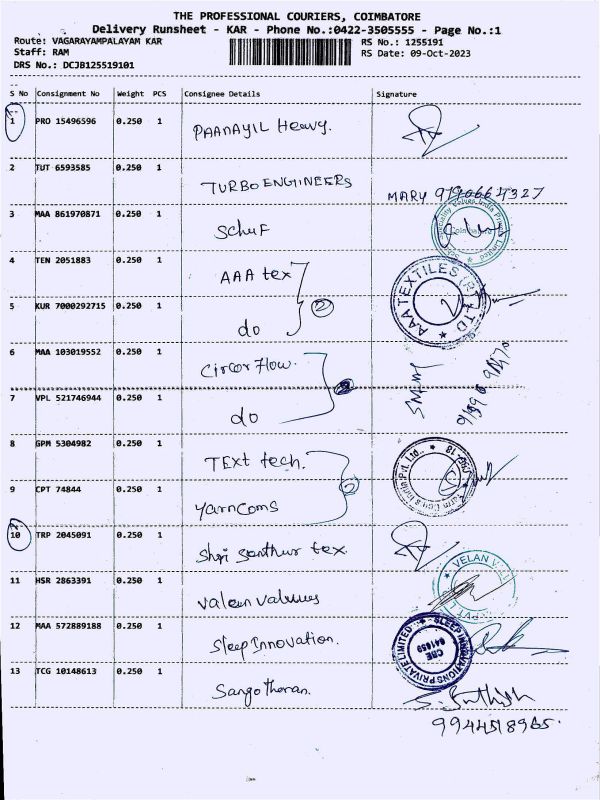 THE PROFESSIONAL COURIERS, COIMBATORE
Delivery Runsheet - KAR - Phone No.:0422-3505555 - Page No.:1
Route: VAGARAYAMPALAYAM KAR
RS No.: 1255191
Staff: RAM
RS Date: 09-Oct-2023
DRS No.: DCJB125519101
S No Consignment No Weight PCS Consignee Details Signature
1 PRO 15496596 0.250 1 PAANAYIL Heavy.
2 TUT 6593585 0.250 1 TURBO ENGINEERS
MARY
3 MAA 861970871 0.250 1 Schuf
4 TEN 2051883 0.250 1 AAA tex
AAA TEXTILES (P) LTD
5 KUR 7000292715 0.250 1 do
2
6 MAA 103019552 0.250 1 Circor flow.
7 VPL 521746944 0.250 1 do
8 GPM 5304982 0.250 1 TEXt tech.
9 CPT 74844 0.250 1 yarncoms
10 TRP 2045091 0.250 1 Shri Santhur tex.
11 HSR 2863391 0.250 1
VELAN
12 MAA 572889188 0.250 1 Sleep Innovation.
SLEEP INNOVATIONS PRIVATE LIMITED
CBE
641659
13 TCG 10148613 0.250 1